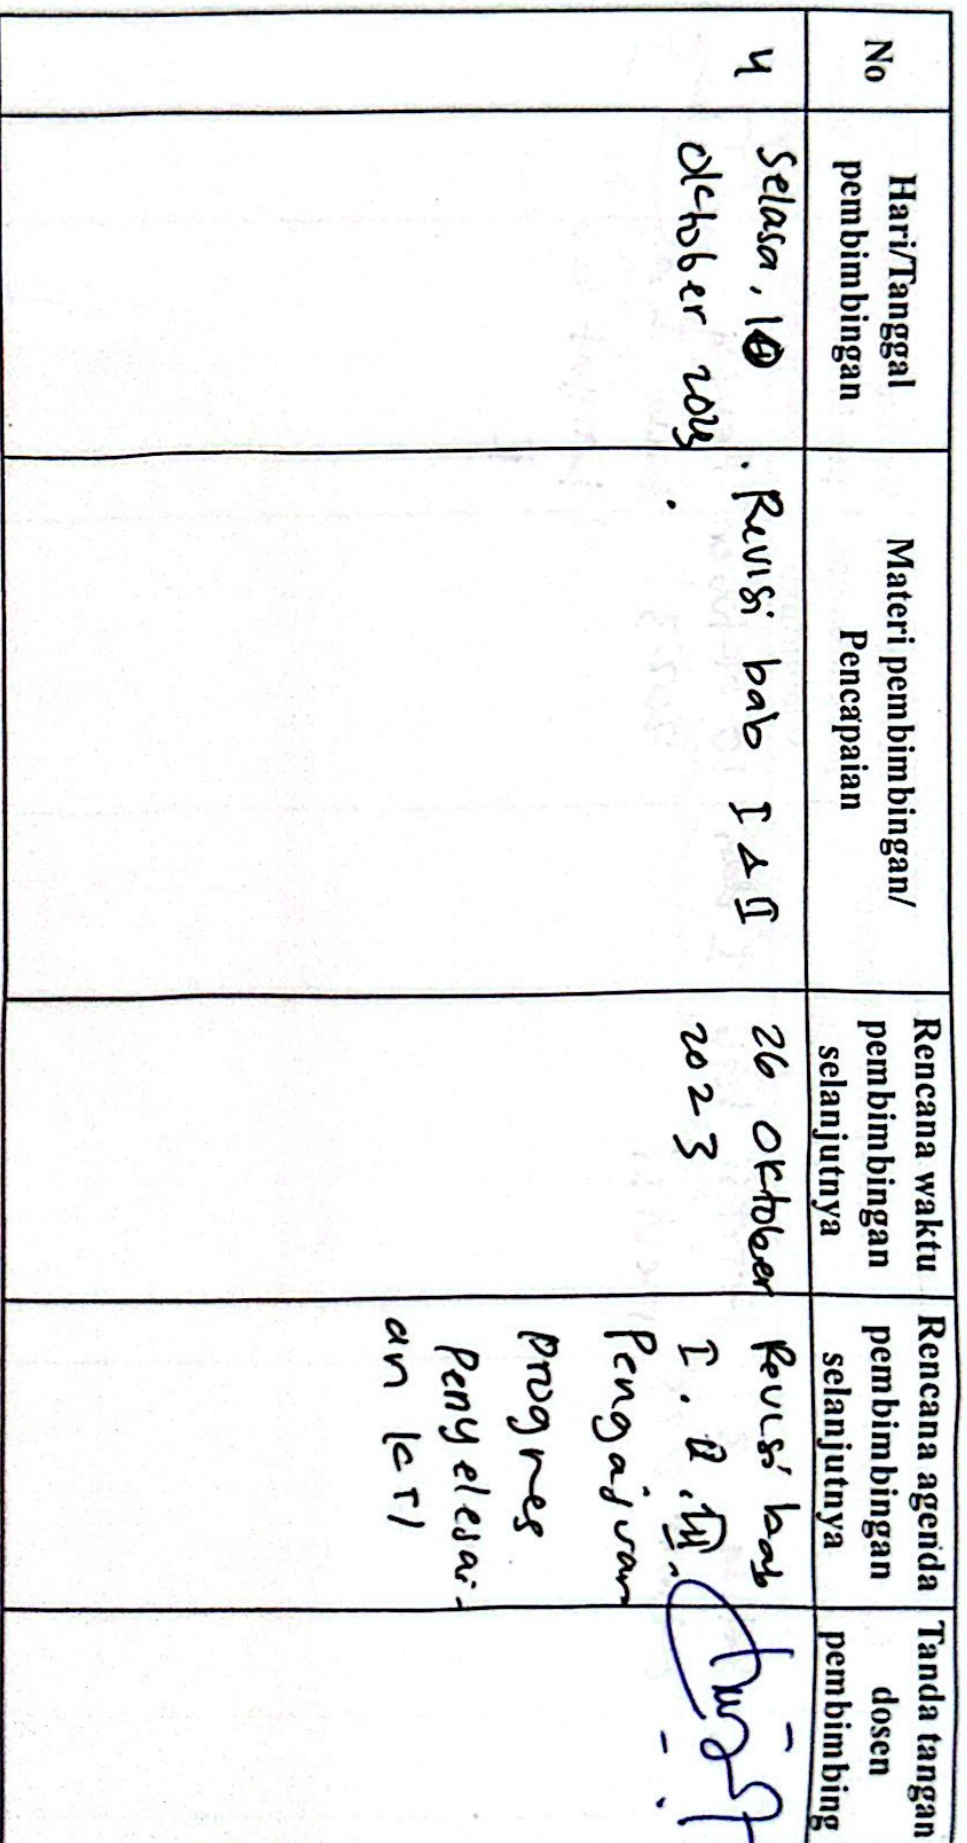 No
Hari/Tanggal
pembimbingan
Materi pembimbingan/
Pencapaian
Rencana waktu
pembimbingan
selanjutnya
Rencana agenda
pembimbingan
selanjutnya
Tanda tangan
dosen
pembimbing
4
Selasa, 10
Oktober 2023
. Revisi bab I & II
.
26 Oktober
2023
Revisi bab
I. II. III.
Pengajuan
progres
Penyelesai-
an KTI